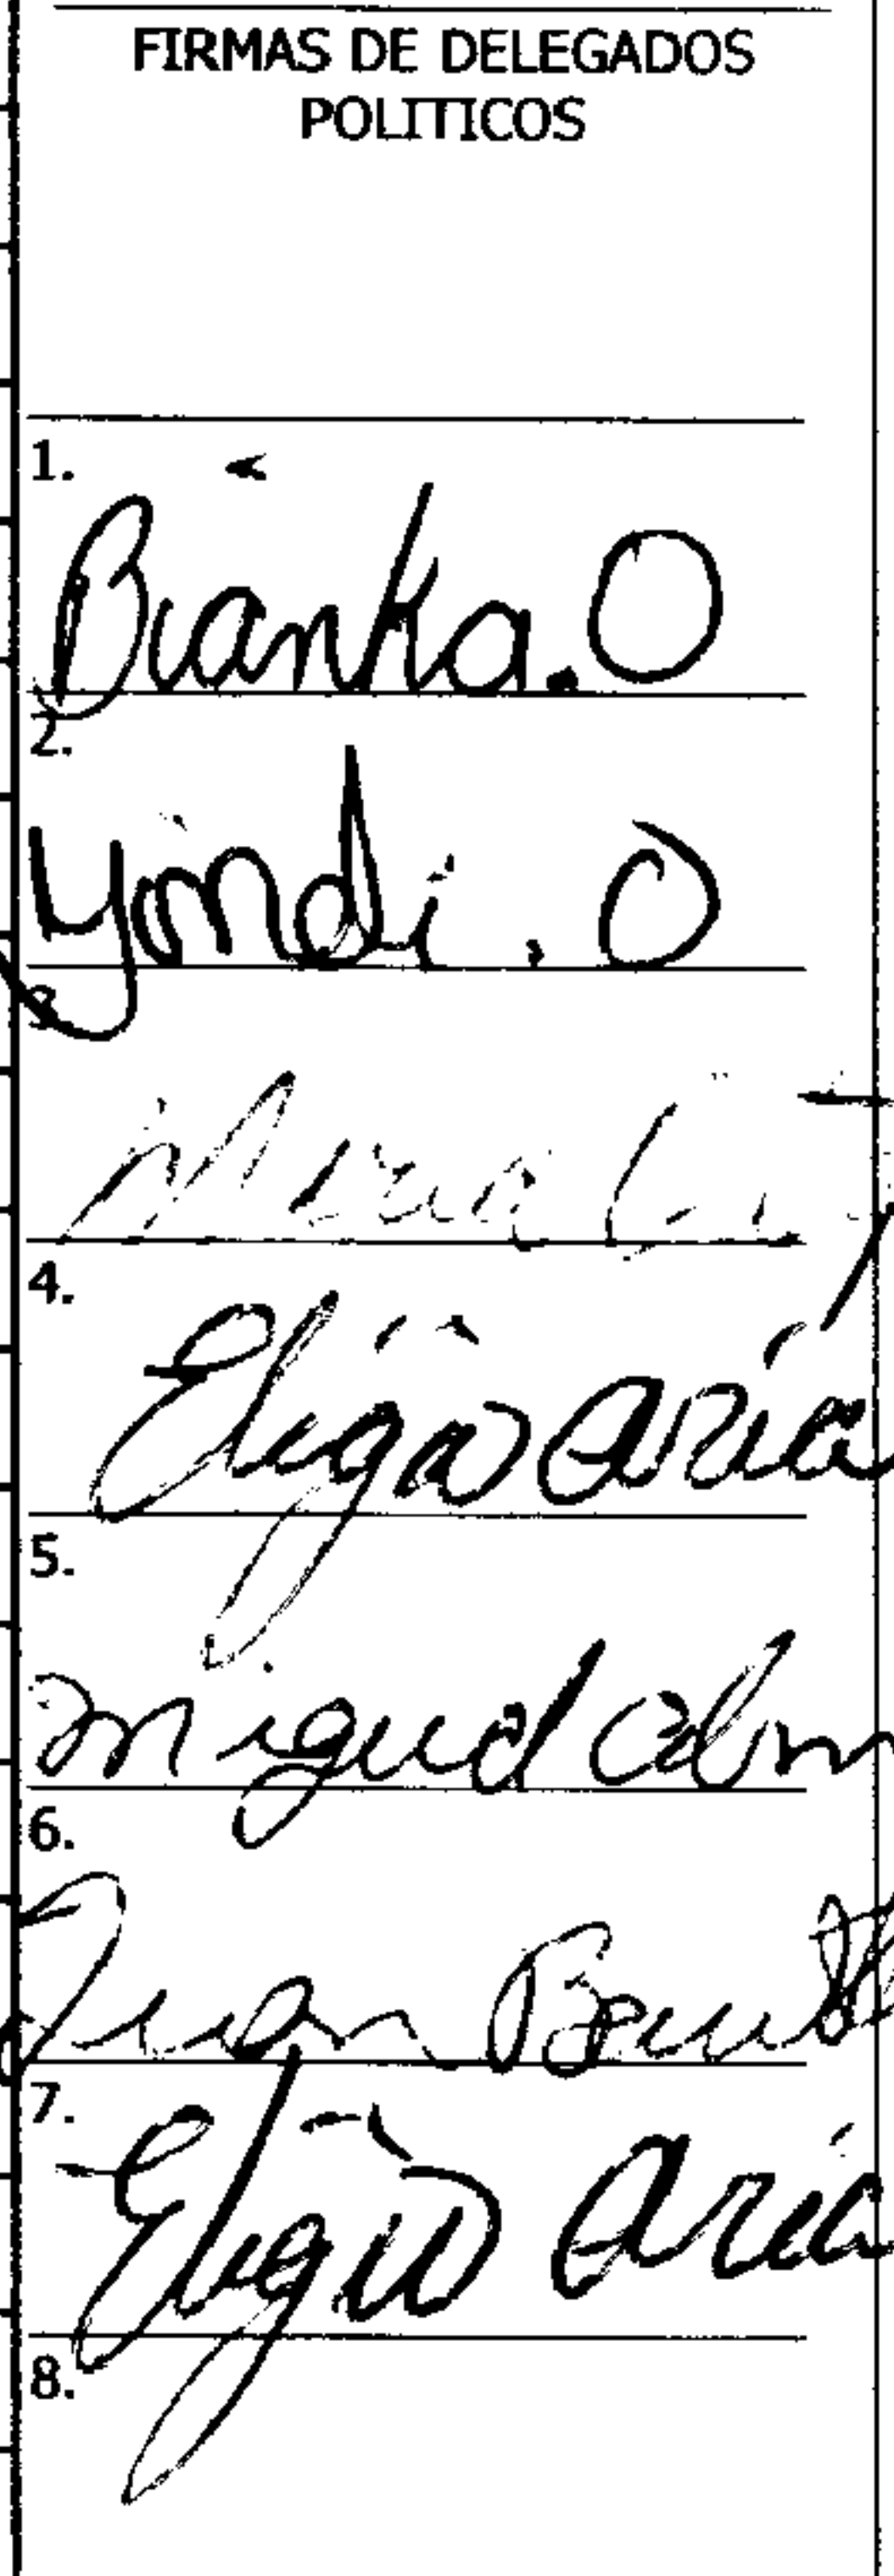 FIRMAS DE DELEGADOS
POLITICOS
1.
Bianka. O
2.
Yindi. O
3.
4.
Eligio aria
5.
Miguel
6.
Juan
7.
Eligio aria
8.